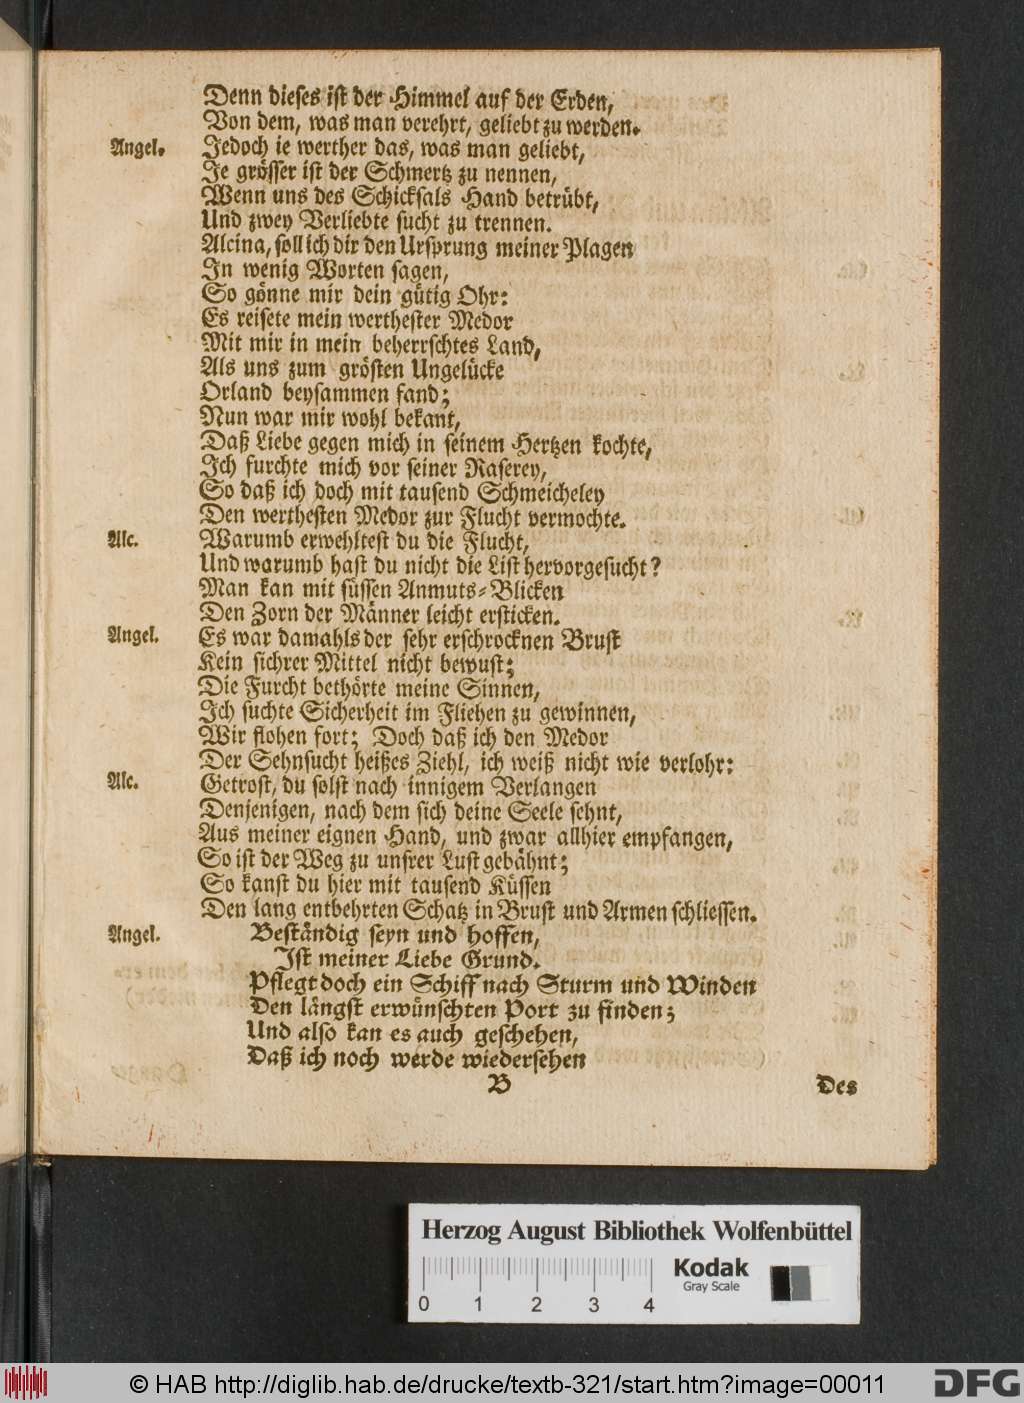 Denn dieses ist der Himmel auf der Erden,
Von dem, was man verehrt, geliebt zu werden.
Angel. Jedoch ie werther das, was man geliebt,
Je grösser ist der Schmertz zu nennen,
Wenn uns des Schicksals Hand betrübt,
Und zwey Verliebte sucht zu trennen.
Alcina, soll ich dir den Ursprung meiner Plagen
In wenig Worten sagen,
So gönne mir dein gütig Ohr:
Es reisete mein werthester Medor
Mit mir in mein beherrschtes Land,
Als uns zum grösten Ungelücke
Orland beysammen fand;
Nun war mir wohl bekant,
Daß Liebe gegen mich in seinem Hertzen kochte,
Ich furchte mich vor seiner Raserey,
So daß ich doch mit tausend Schmeicheley
Den werthesten Medor zur Flucht vermochte.
Alc. Warumb erwehltest du die Flucht,
Und warumb hast du nicht die List hervorgesucht?
Man kan mit süssen Anmuts-Blicken
Den Zorn der Männer leicht ersticken.
Angel. Es war damahls der sehr erschrocknen Brust
Kein sichrer Mittel nicht bewust;
Die Furcht bethörte meine Sinnen,
Ich suchte Sicherheit im Fliehen zu gewinnen,
Wir flohen fort; Doch daß ich den Medor
Der Sehnsucht heißes Ziehl, ich weiß nicht wie verlohr:
Alc. Getrost, du solst nach innigem Verlangen
Denjenigen, nach dem sich deine Seele sehnt,
Aus meiner eignen Hand, und zwar allhier empfangen,
So ist der Weg zu unsrer Lust gebähnt;
So kanst du hier mit tausend Küssen
Den lang entbehrten Schatz in Brust und Armen schliessen.
Angel. Beständig seyn und hoffen,
Ist meiner Liebe Grund.
Pflegt doch ein Schiff nach Sturm und Winden
Den längst erwünschten Port zu finden;
Und also kan es auch geschehen,
Daß ich noch werde wiedersehen
B Des
Herzog August Bibliothek Wolfenbüttel
Kodak
Gray Scale
0 1 2 3 4
© HAB http://diglib.hab.de/drucke/textb-321/start.htm?image=00011
DFG